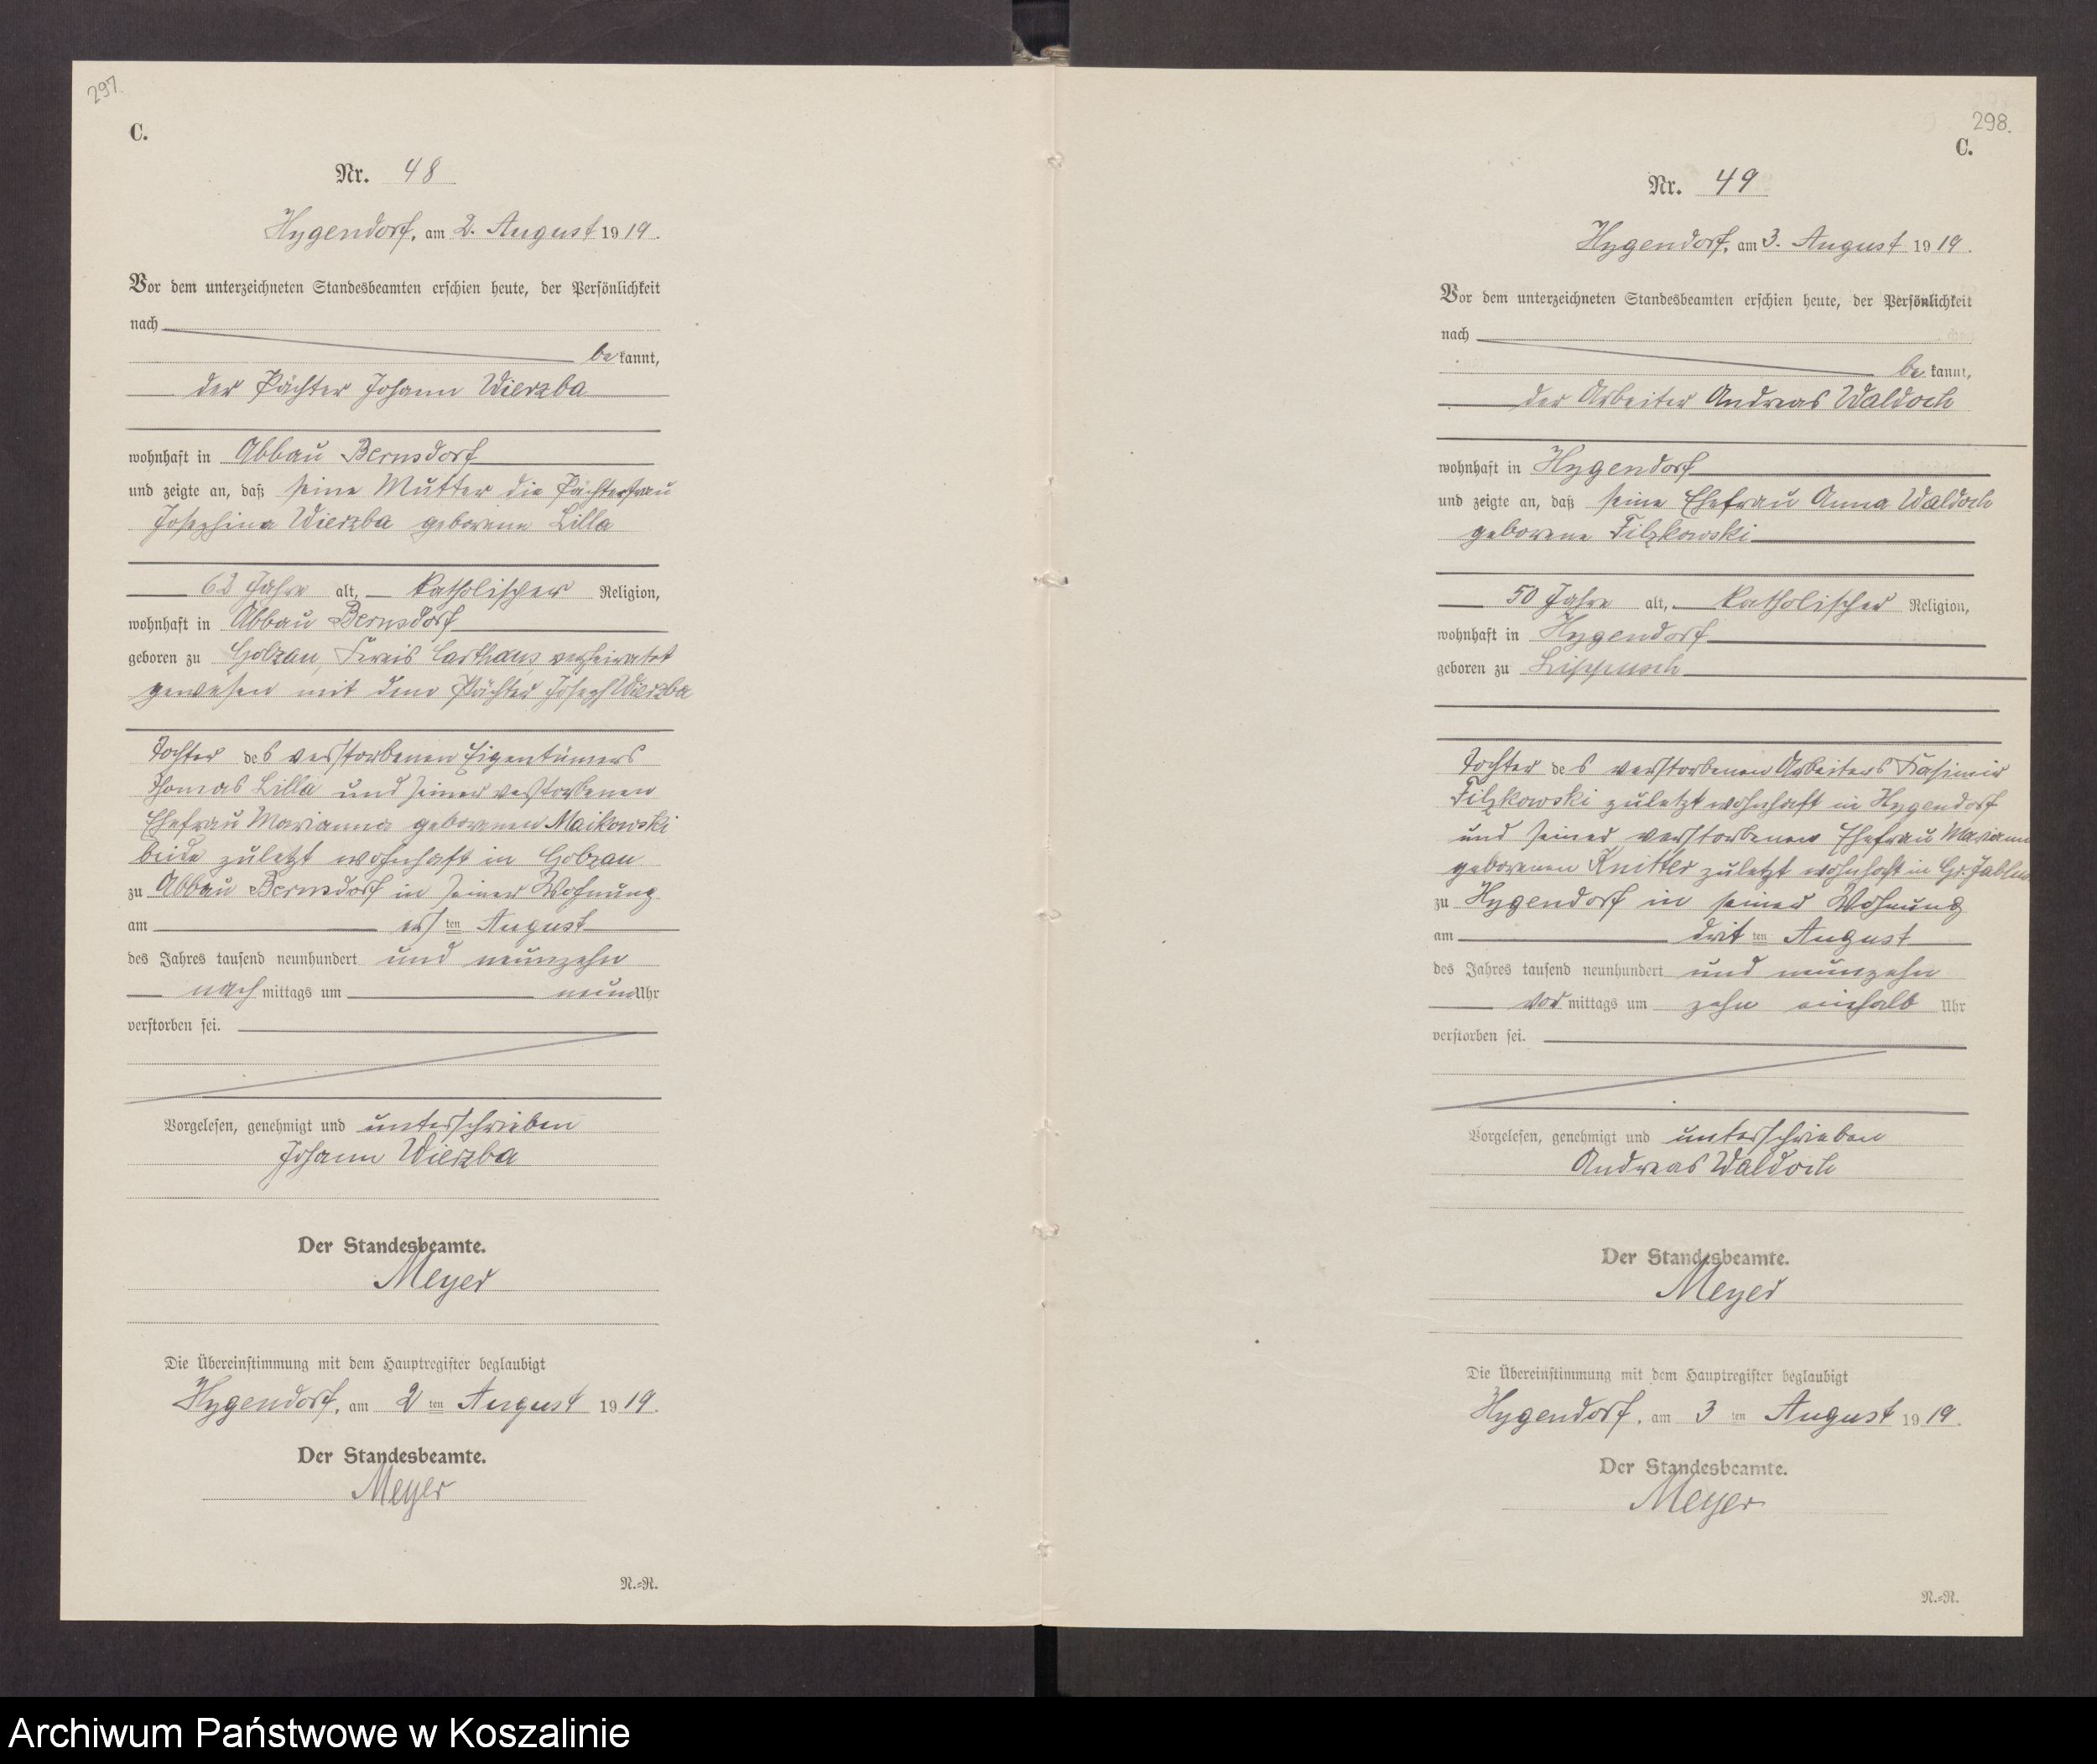 297.
C.
Nr. 48
Hygendorf, am 2. August 1919.
Vor dem unterzeichneten Standesbeamten erschien heute, der Persönlichkeit
nach
bekannt,
der Pächter Johann Wierzba
wohnhaft in Abbau Bernsdorf
und zeigte an, daß seine Mutter die Pächterfrau
Josephina Wierzba geborene Lilla
62 Jahre alt, katholischer Religion,
wohnhaft in Abbau Bernsdorf
geboren zu Golzau, Kreis Carthaus, verheiratet
gewesen mit dem Pächter Joseph Wierzba
Tochter des verstorbenen Eigentümers
Thomas Lilla und seiner verstorbenen
Ehefrau Marianna geborenen Maikowski
beide zuletzt wohnhaft in Golzau
zu Abbau Bernsdorf in seiner Wohnung
am ersten August
des Jahres tausend neunhundert und neunzehn
nachmittags um neun Uhr
verstorben sei.
Vorgelesen, genehmigt und unterschrieben
Johann Wierzba
Der Standesbeamte.
Meyer
Die Übereinstimmung mit dem Hauptregister beglaubigt
Hygendorf, am 2ten August 1919.
Der Standesbeamte.
Meyer
N.=R.
298.
C.
Nr. 49
Hygendorf, am 3. August 1919.
Vor dem unterzeichneten Standesbeamten erschien heute, der Persönlichkeit
nach
bekannt,
der Arbeiter Andreas Waldoch
wohnhaft in Hygendorf
und zeigte an, daß seine Ehefrau Anna Waldoch
geborene Filzkowski
50 Jahre alt, katholischer Religion,
wohnhaft in Hygendorf
geboren zu Lippusch
Tochter des verstorbenen Arbeiters Kasimir
Filzkowski zuletzt wohnhaft in Hygendorf
und seiner verstorbenen Ehefrau Marianna
geborenen Knitter zuletzt wohnhaft in Gr.
zu Hygendorf in seiner Wohnung
am dritten August
des Jahres tausend neunhundert und neunzehn
vormittags um zehn einhalb Uhr
verstorben sei.
Vorgelesen, genehmigt und unterschrieben
Andreas Waldoch
Der Standesbeamte.
Meyer
Die Übereinstimmung mit dem Hauptregister beglaubigt
Hygendorf, am 3ten August 1919.
Der Standesbeamte.
Meyer
N.=R.
Archiwum Państwowe w Koszalinie